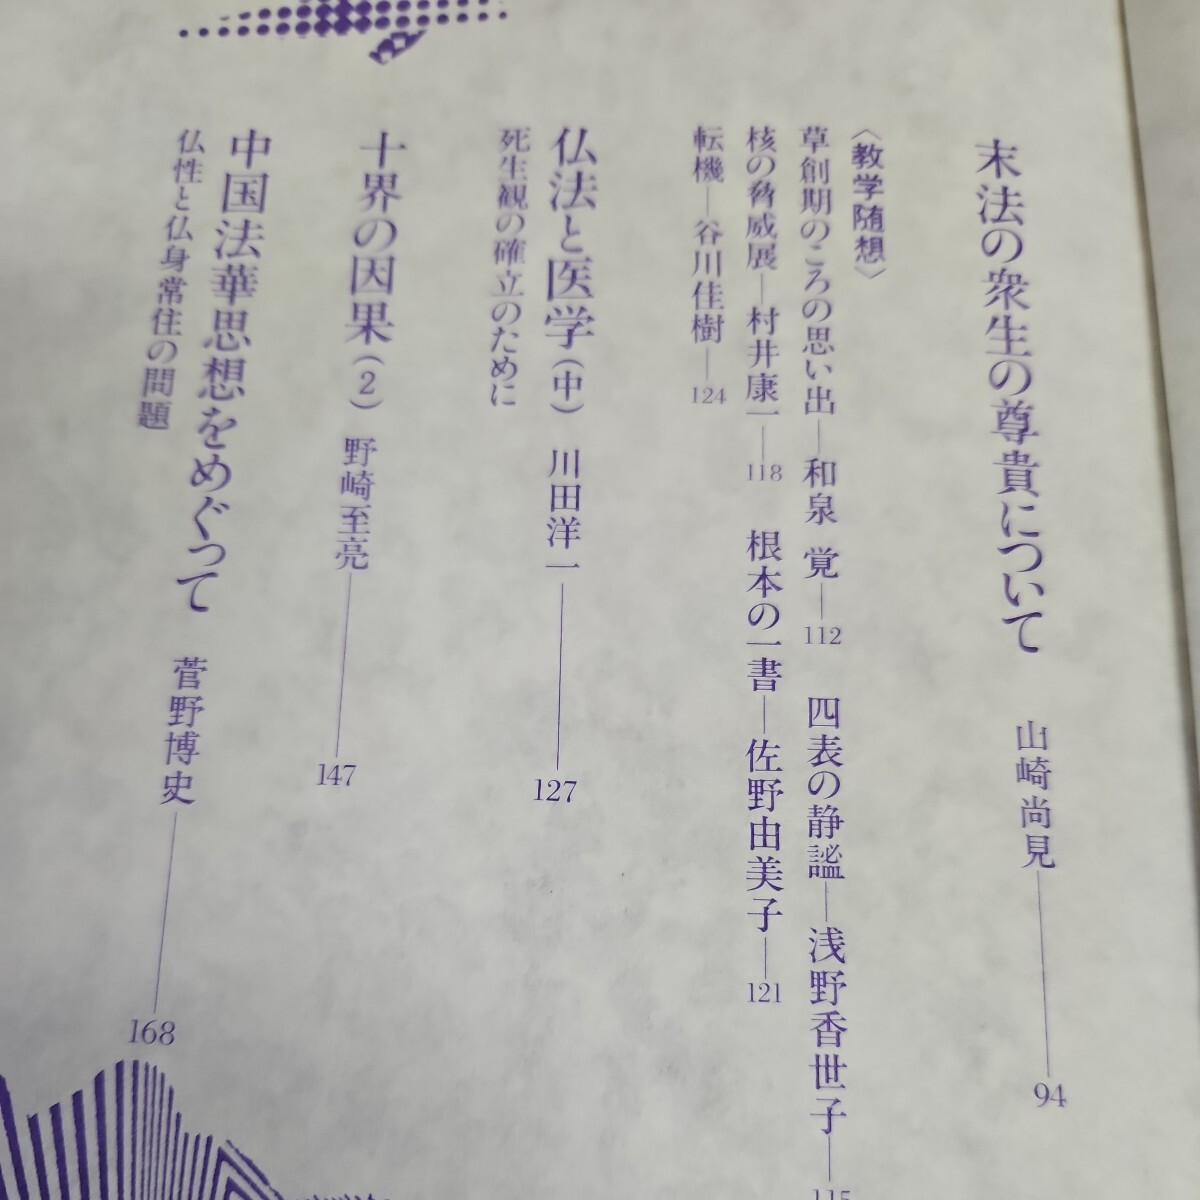 末法の衆生の尊貴について 山崎尚見 94
〈教学随想〉
草創期のころの思い出—和泉 覚—112 四表の静謐—浅野香世子—115
核の脅威展—村井康一—118 根本の一書—佐野由美子—121
転機—谷川佳樹—124
仏法と医学(中) 川田洋一 127
死生観の確立のために
十界の因果(2) 野崎至亮 147
中国法華思想をめぐって 菅野博史 168
仏性と仏身常住の問題